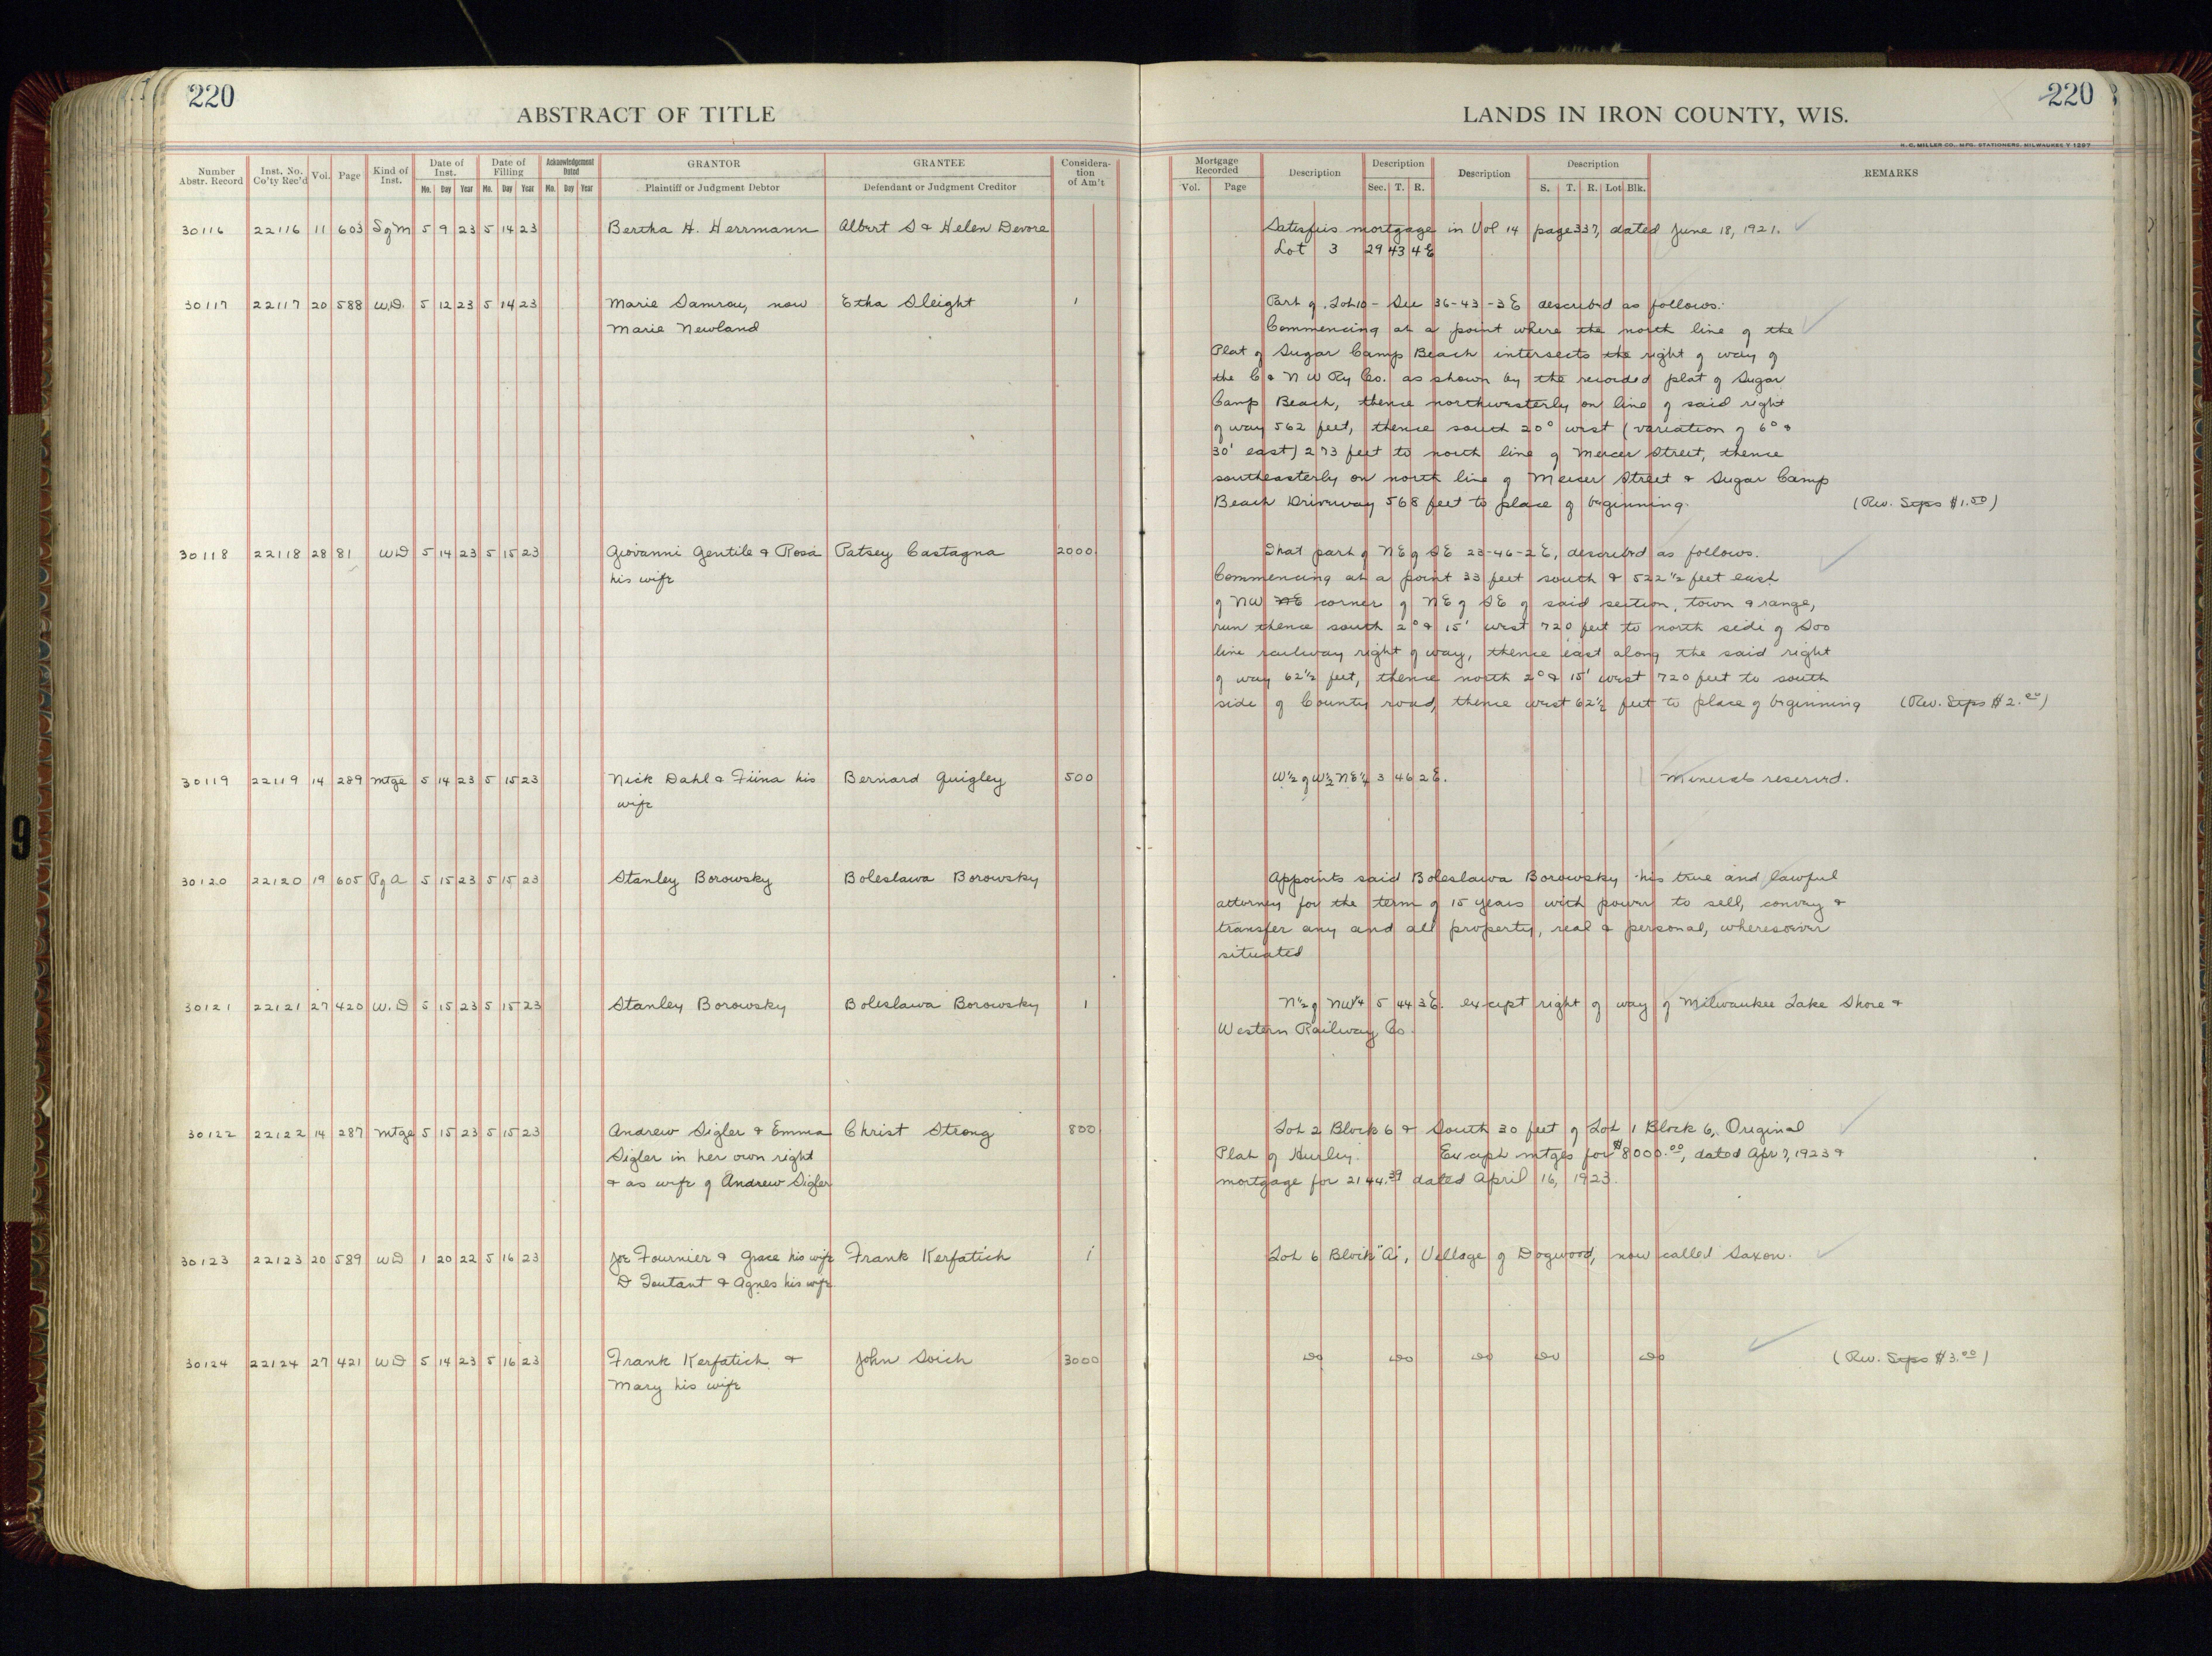 220
ABSTRACT OF TITLE
Number Abstr. Record | Inst. No. Co'ty Rec'd | Vol. | Page | Kind of Inst. | Date of Inst. Mo. Day Year | Date of Filling Mo. Day Year | Acknowledgement Dated Mo. Day Year | GRANTOR Plaintiff or Judgment Debtor | GRANTEE Defendant or Judgment Creditor | Consideration of Am't
30116 22116 11 603 SgM 5 9 23 5 14 23 Bertha H. Herrmann Albert S & Helen Devore
30117 22117 20 588 W.D. 5 12 23 5 14 23 Marie Samray, now Etha Sleight 1
Marie Newland
30118 22118 28 81 WD 5 14 23 5 15 23 Giovanni Gentile & Rosa Patsey Castagna 2000
his wife
30119 22119 14 289 mtge 5 14 23 5 15 23 Nick Dahl & Fiina his Bernard Quigley 500
wife
30120 22120 19 605 PgA 5 15 23 5 15 23 Stanley Borowsky Boleslawa Borowsky
30121 22121 27 420 W.D 5 15 23 5 15 23 Stanley Borowsky Boleslawa Borowsky 1
30122 22122 14 287 mtge 5 15 23 5 15 23 Andrew Sigler & Emma Christ Strong 800
Sigler in her own right
& as wife of Andrew Sigler
30123 22123 20 589 WD 1 20 22 5 16 23 Joe Fournier & Grace his wife Frank Kerfatich 1
D Toutant & Agnes his wife
30124 22124 27 421 WD 5 14 23 5 16 23 Frank Kerfatich & John Soich 3000
Mary his wife
220
LANDS IN IRON COUNTY, WIS.
H. C. MILLER CO., MFG. STATIONERS, MILWAUKEE
Mortgage Recorded Vol. Page | Description | Description Sec. T. R. | Description | Description S. T. R. Lot Blk. | REMARKS
Satisfies mortgage in Vol 14 page 337, dated June 18, 1921.
Lot 3 29 43 4E
Part of Lot 10 - Sec 36-43-3E described as follows:
Commencing at a point where the north line of the
Plat of Sugar Camp Beach intersects the right of way of
the C & N W Ry Co. as shown by the recorded plat of Sugar
Camp Beach, thence northwesterly on line of said right
of way 562 feet, thence south 20° west (variation of 6° &
30' east) 273 feet to north line of Mercer Street, thence
southeasterly on north line of Mercer Street & Sugar Camp
Beach Driveway 568 feet to place of beginning. (Rev. Stps $1.50)
That part of NE of SE 23-46-2E, described as follows.
Commencing at a point 33 feet south & 522 1/2 feet east
of NW NE corner of NE of SE of said section, town & range,
run thence south 2° & 15' west 720 feet to north side of Soo
line railway right of way, thence east along the said right
of way 62 1/2 feet, thence north 2° & 15' west 720 feet to south
side of County road, thence west 62 1/2 feet to place of beginning (Rev. Stps $2.00)
W 1/2 of W 1/2 NE 1/4 3 46 2E. Minerals reserved.
Appoints said Boleslawa Borowsky his true and lawful
attorney for the term of 15 years with power to sell, convey &
transfer any and all property, real & personal, wheresoever
situated
N 1/2 of NW 1/4 5 44 3E. except right of way of Milwaukee Lake Shore &
Western Railway Co.
Lot 2 Block 6 & South 30 feet of Lot 1 Block 6, Original
Plat of Hurley. Except mtges for $8000.00, dated Apr 7, 1923 &
mortgage for 2144.39 dated April 16, 1923.
Lot 6 Block "A", Village of Dogwood, now called Saxon.
do do do do do (Rev. Stps $3.00)
9